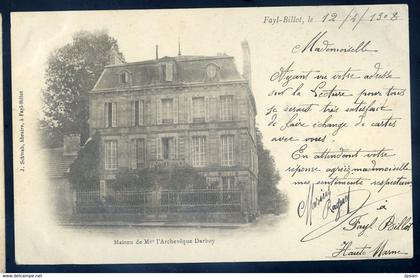 Fayl-Billot, le 12/4/1908
Mademoiselle
Ayant vu votre adresse
sur la Lecture pour tous
je serait très satisfait
de faire échange de cartes
avec vous.
En attendant votre
réponse agréez mademoiselle
mes sentiments respectueux
à
Fayl Billot
Haute Marne
J. Schwab, libraire, à Fayl-Billot
Maison de Mgr l'Archevêque Darboy